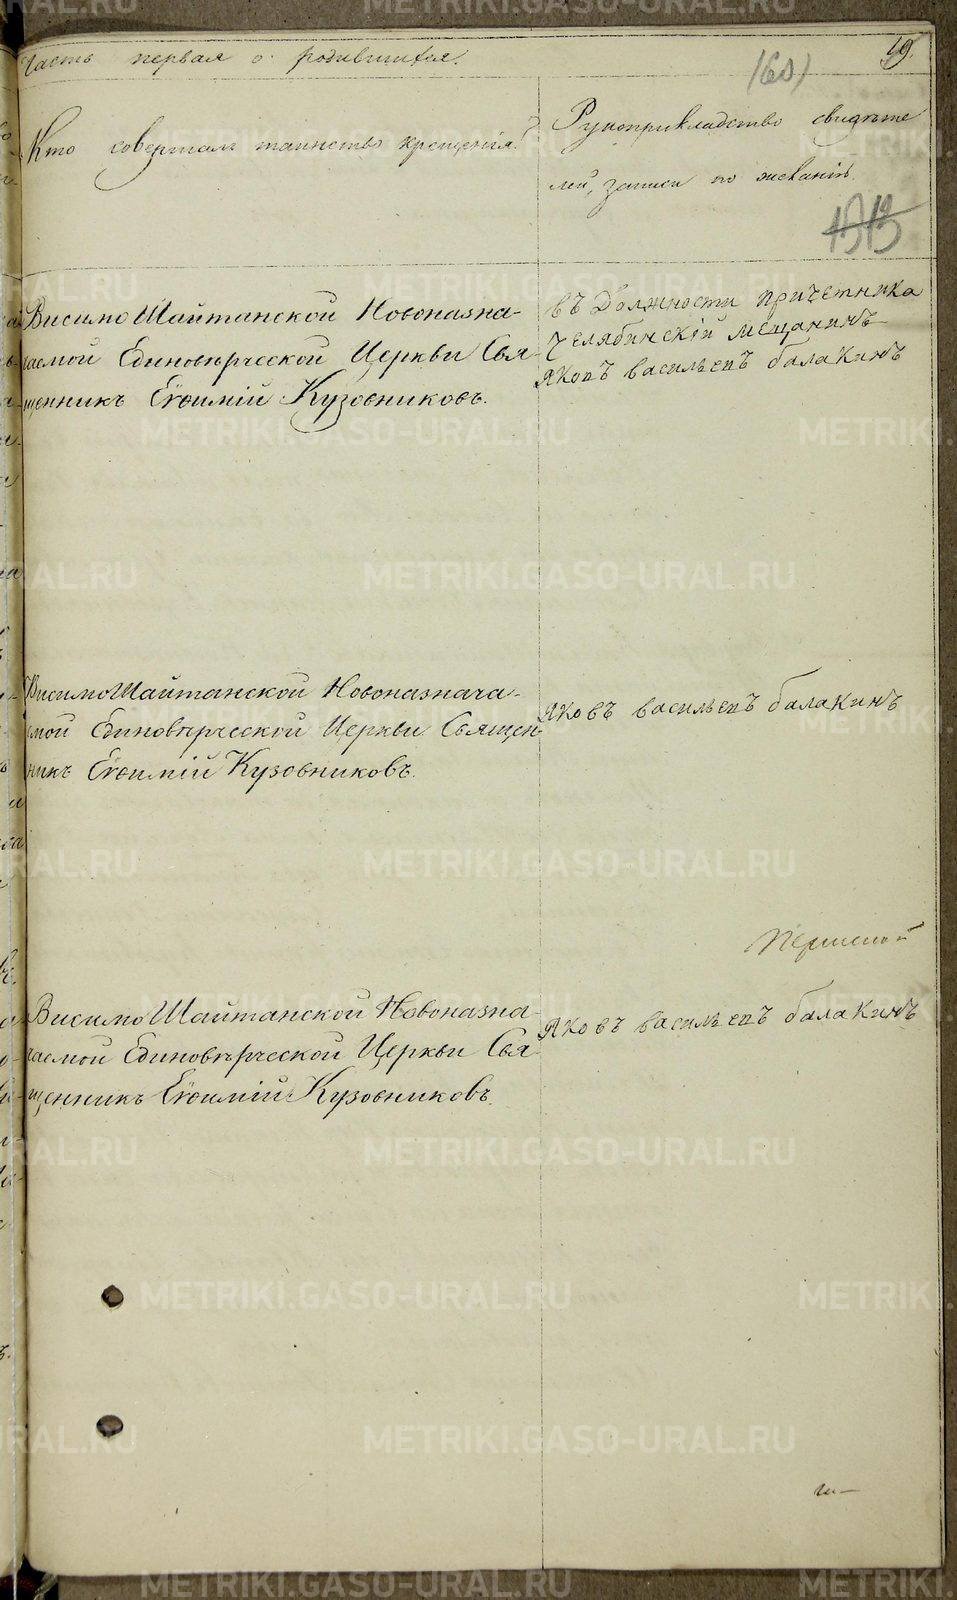 Часть первая о родившихся.
19.
Кто совершалъ таинство крещенія?
Рукоприкладство свидѣте
лей, записи по желанію.
ВисимоШайтанской Новоназна-
чаемой Единовѣрческой Церкви Свя-
щенникъ Евѳимій Кузовниковъ.
въ должности причетника
челябинскій мещанинъ
яковъ васильевъ балакинъ
ВисимоШайтанской Новоназнача-
емой Единовѣрческой Церкви Священ-
никъ Евѳимій Кузовниковъ.
яковъ васильевъ балакинъ
Пермской
ВисимоШайтанской Новоназна-
чаемой Единовѣрческой Церкви Свя-
щенникъ Евѳимій Кузовниковъ.
яковъ васильевъ балакинъ
METRIKI.GASO-URAL.RU